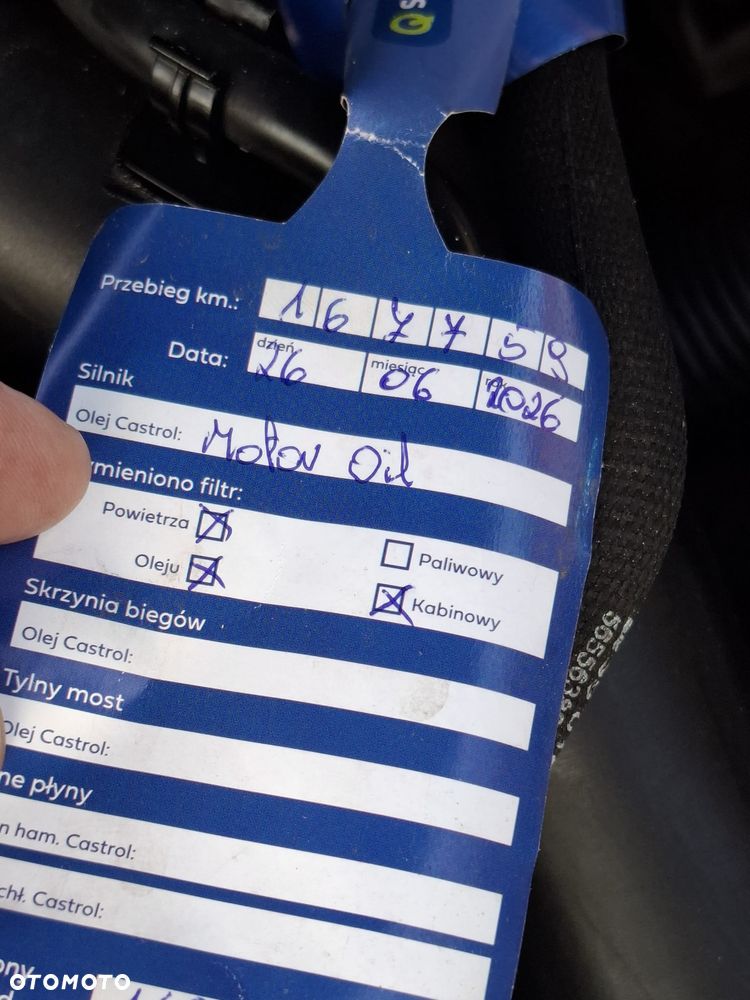 Przebieg km.: 1 6 7 7 5 9
Data: dzień 26 miesiąc 06 2026
Silnik
Olej Castrol: Motor Oil
ymieniono filtr:
Powietrza
Paliwowy
Oleju
Kabinowy
Skrzynia biegów
Olej Castrol:
Tylny most
Olej Castrol:
ne płyny
n ham. Castrol:
chł. Castrol:
OTOMOTO